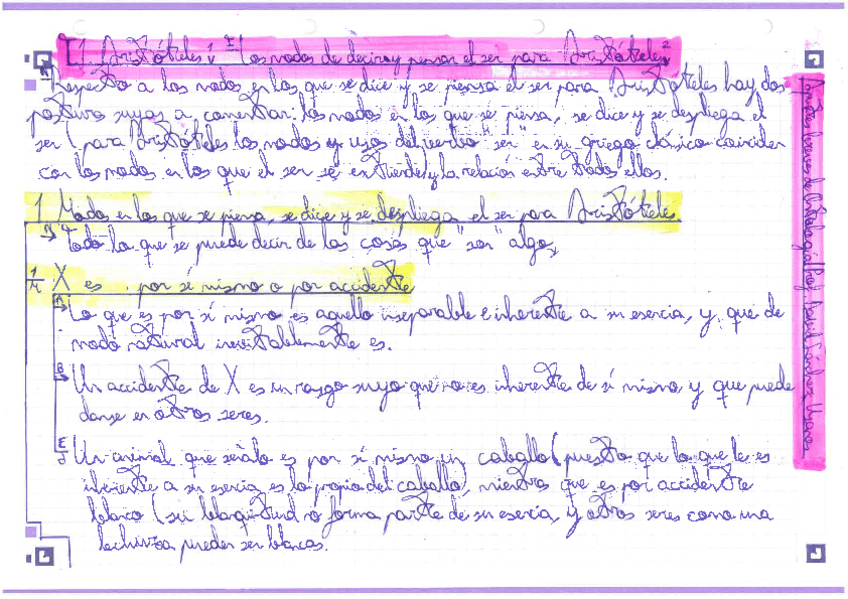 Aristóteles Los modos de decir y pensar el ser para Aristóteles
Respecto a los modos en los que se dice y se piensa el ser para Aristóteles hay dos
posturas suyas a comentar: los modos en los que se piensa, se dice y se despliega el
ser (para Aristóteles los modos y usos del verbo "ser" en su griego clásico coinciden
con los modos en los que el ser se entiende) y la relación entre todos ellos.
1 Modos en los que se piensa, se dice y se despliega el ser para Aristóteles
Todo lo que se puede decir de las cosas que "son" algo,
X es , por sí mismo o por accidente
Lo que es por sí mismo es aquello inseparable e inherente a su esencia, y que de
modo natural inevitablemente es.
Un accidente de X es un rasgo suyo que no es inherente de sí mismo y que puede
darse en otros seres.
Un animal que señalo es por sí mismo un caballo (puesto que lo que le es
inherente a su esencia es lo propio del caballo), mientras que es por accidente
blanco (su blanquitud no forma parte de su esencia, y otros seres como una
lechuza pueden ser blancos.
Apuntes breves de Ontología Prof. David Sánchez